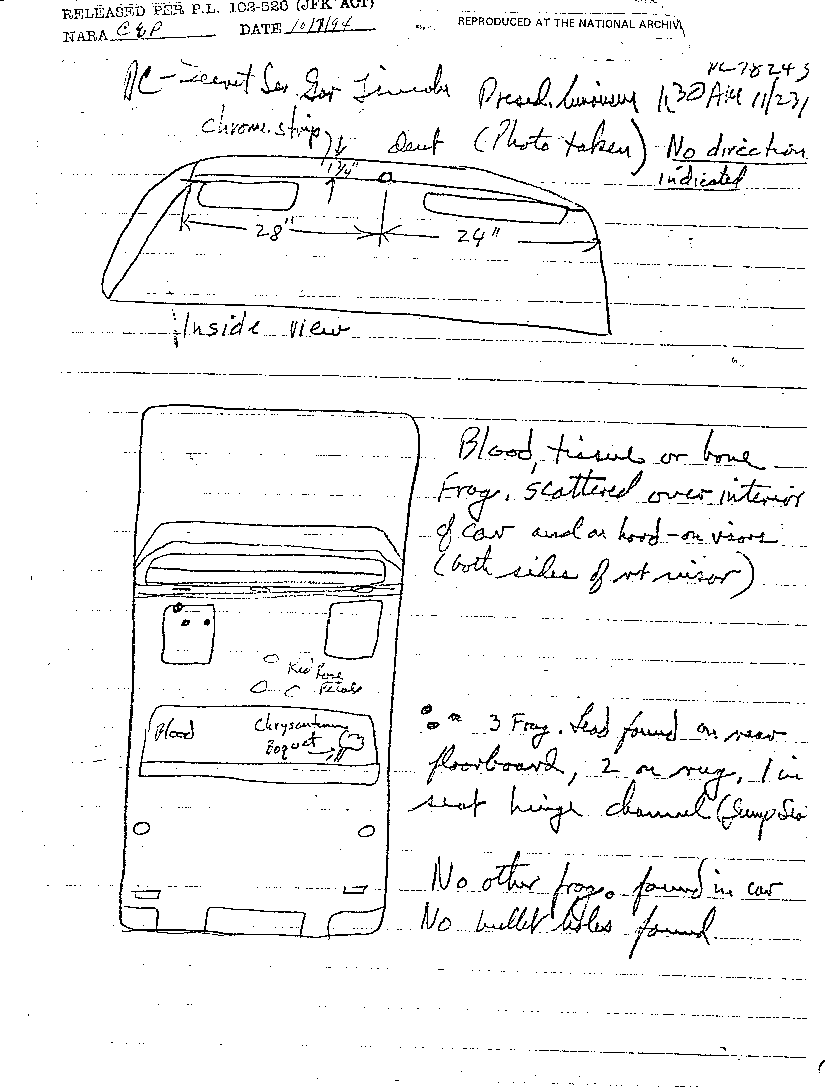 RELEASED PER P.L. 102-526 (JFK ACT)
NARA DATE 10/7/94
REPRODUCED AT THE NATIONAL ARCHIV
PC-78243
DC - Secret Ser Gar Presid. limousine 1:30 AM 11/23/
chrome strip dent (Photo taken) No direction
indicated
1 1/4"
28" 24"
Inside view
Blood, tissue or bone
Frag. scattered over interior
of car and on hood - on visors
(both sides of rt visor)
Red Rose
Petals
Blood
Boquet
3 Frag. lead found on rear
floorboard, 2 on rug, 1 in
seat hinge channel (Jump Sea
No other frags. found in car
No bullet holes found